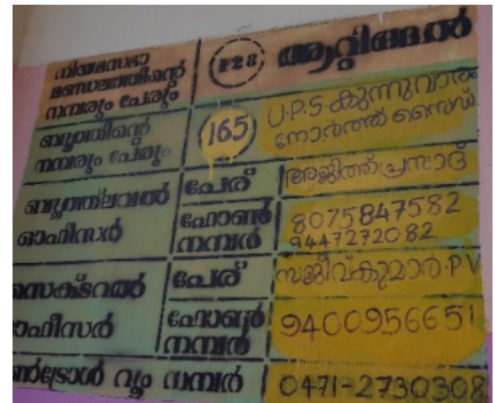 നിയമസഭാ
മണ്ഡലത്തിന്റെ
നമ്പരും പേരും
128 ആറ്റിങ്ങൽ
ബൂത്തിന്റെ
നമ്പരും പേരും
165
U.P.S കുന്നുവാരം
നോർത്ത് സൈഡ്
ബൂത്ത്ലവൽ
ഓഫീസർ
പേര് അജിത്ത് പ്രസാദ്
ഫോൺ
നമ്പർ
8075847582
9447272082
സെക്ടറൽ
ഓഫീസർ
പേര് സജീവ്കുമാർ.P.V
ഫോൺ
നമ്പർ
9400956651
ൺട്രോൾ റൂം നമ്പർ 0471-2730308